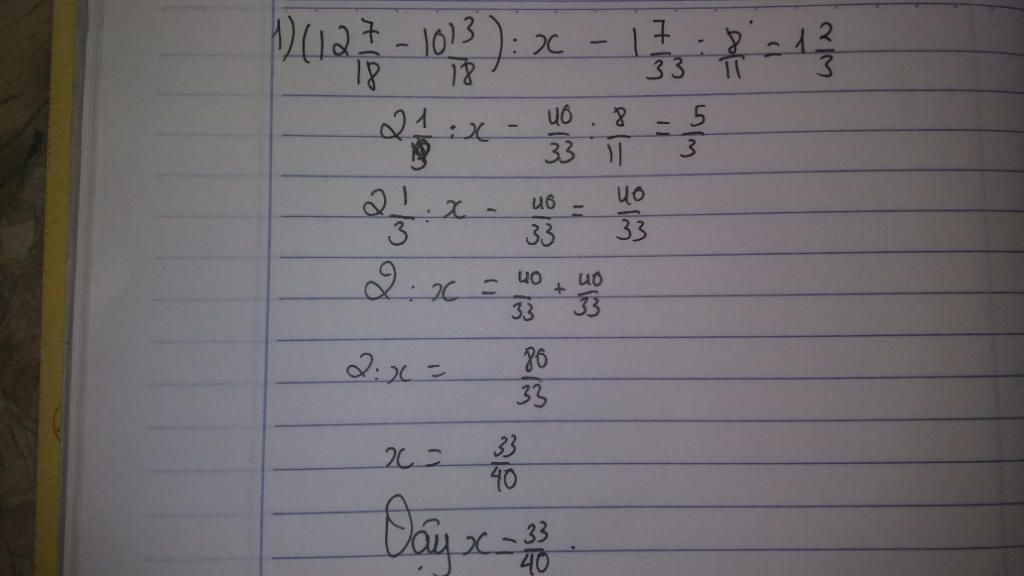 1) (12 7/18 - 10 13/18) : x - 1 7/33 : 8/11 = 1 2/3
2 1/3 : x - 40/33 : 8/11 = 5/3
2 1/3 : x - 40/33 = 40/33
2 : x = 40/33 + 40/33
2 : x = 80/33
x = 33/40
Vậy x = 33/40 .